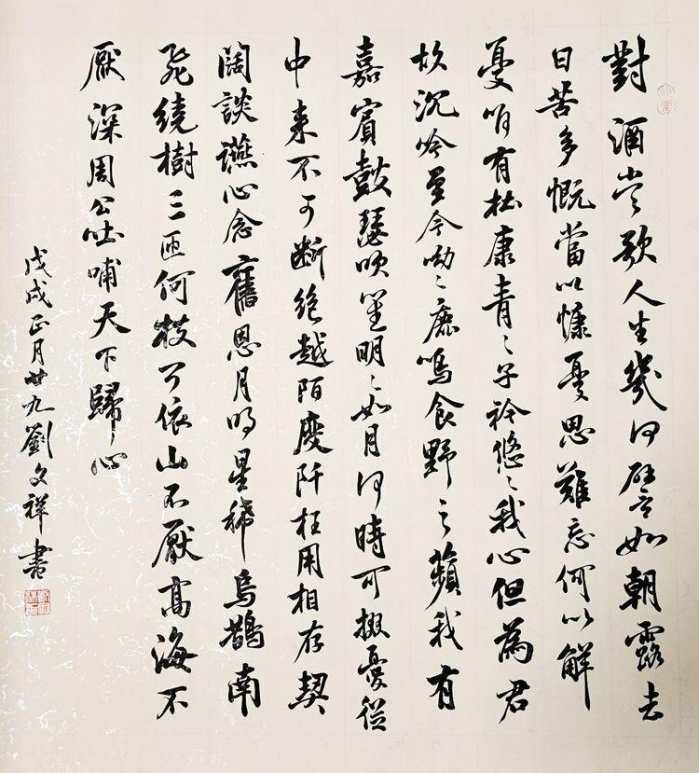 對酒當歌人生幾何譬如朝露去
日苦多慨當以慷憂思難忘何以解
憂唯有杜康青〻子衿悠〻我心但為君
故沉吟至今呦〻鹿鳴食野之蘋我有
嘉賓鼓瑟吹笙明〻如月何時可掇憂從
中來不可斷絕越陌度阡枉用相存契
闊談讌心念舊恩月明星稀烏鵲南
飛繞樹三匝何枝可依山不厭高海不
厭深周公吐哺天下歸心
戊戌正月廿九劉文祥書